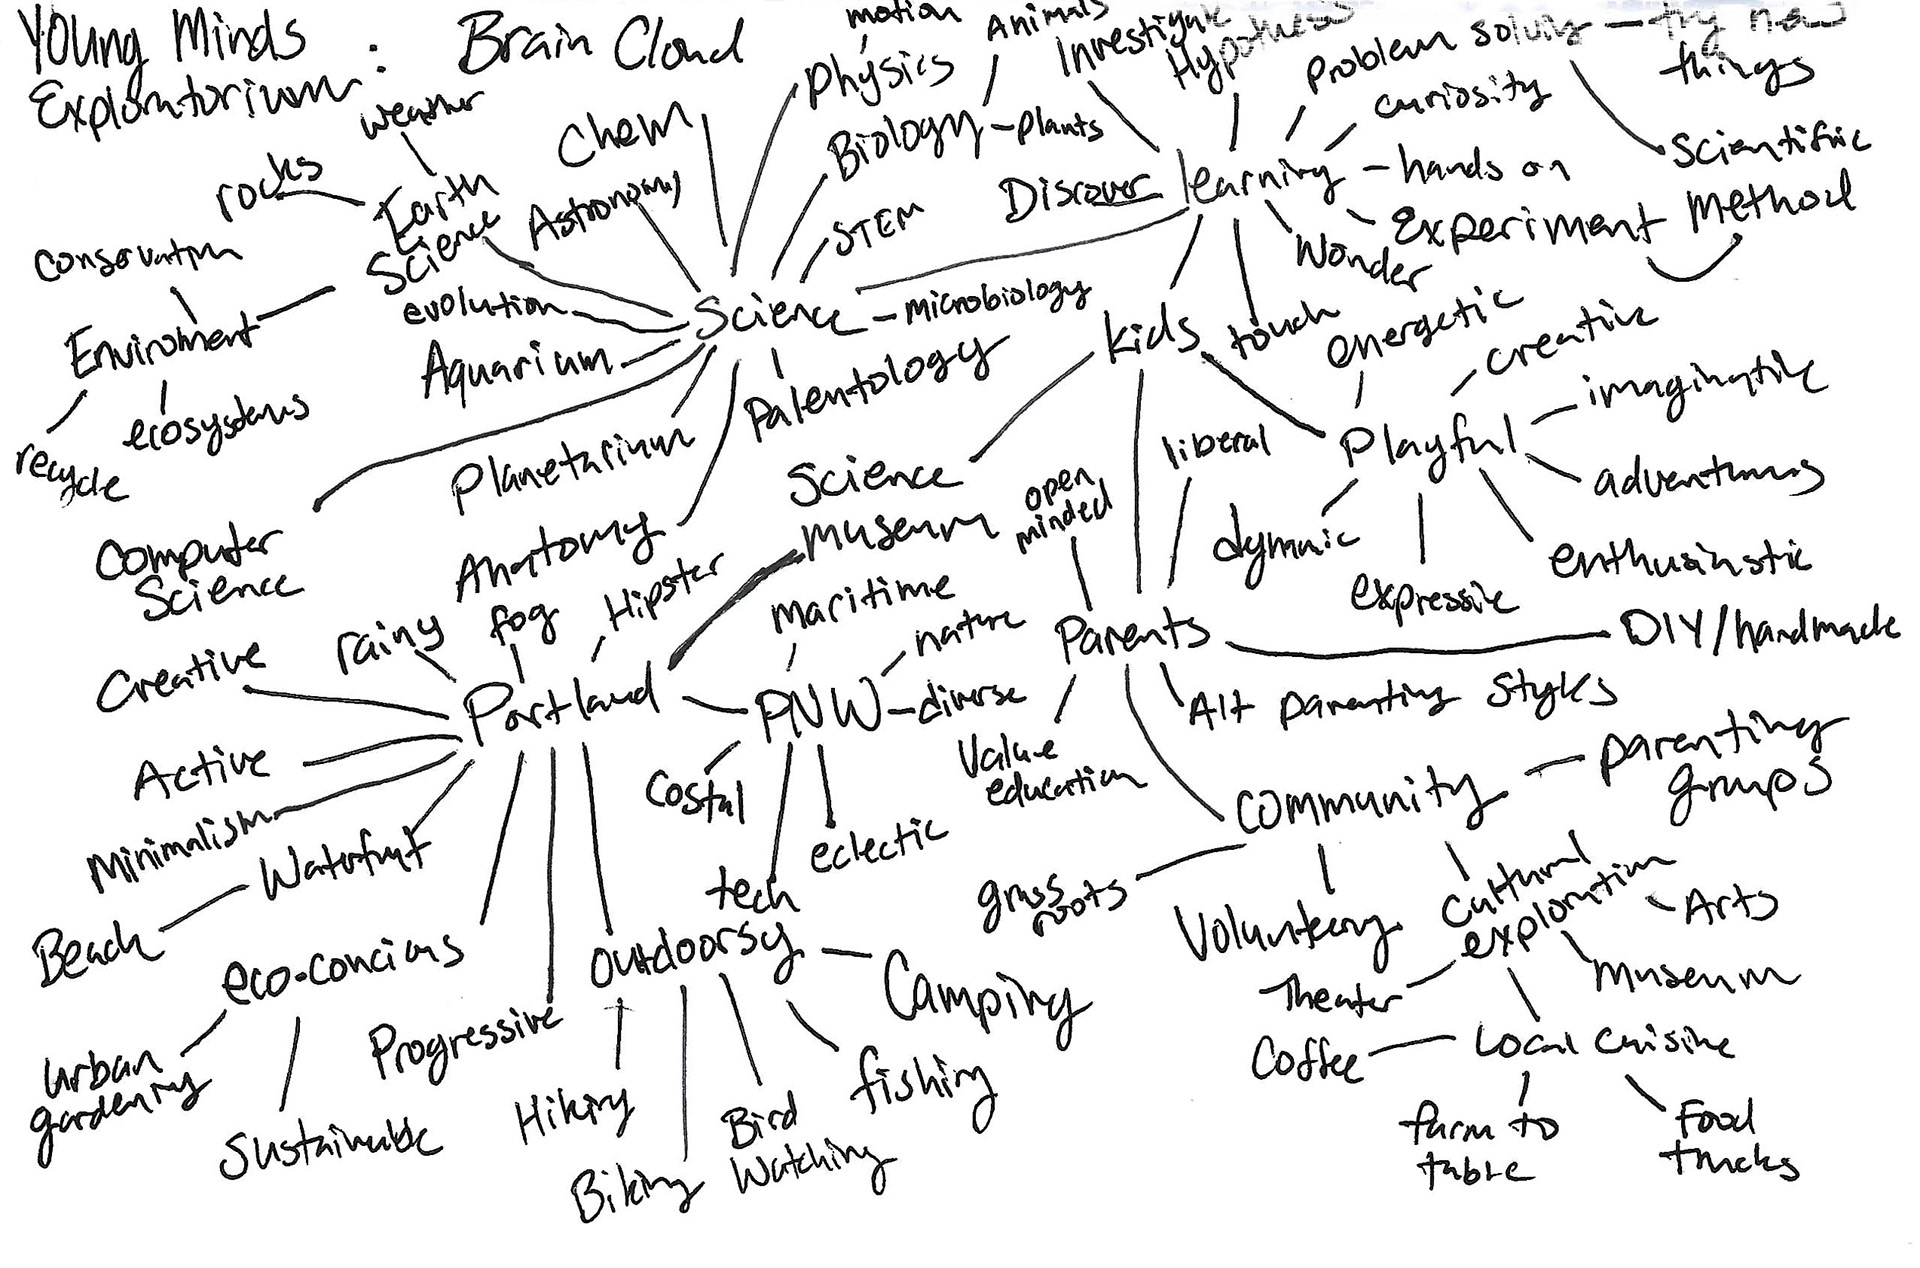 Young Minds
Exploratorium : Brain Cloud
motion
Animals
Physics
Investigate
Hypothesis
Problem solving – try new
things
curiosity
weather
Chem
Biology – plants
Scientific
Method
rocks
Earth
Science
Astronomy
STEM
Discover
learning – hands on
Experiment
Wonder
touch
conservation
Enviroment
recycle
ecosystems
evolution
Aquarium
Science – microbiology
Palentology
Planetarium
Anatomy
Computer
Science
kids
energetic
creative
imaginative
Playful
adventurous
enthusiastic
expressive
dymaic
Science
museum
open
minded
liberal
Parents
DIY/handmade
Alt parenting styles
Value
education
Community
parenting
groups
grass
roots
Volunteering
Cultural
exploration
Arts
Museum
Theater
Local cuisine
Coffee
farm to
table
Food
trucks
Creative
rainy
fog
Hipster
Portland
maritime
nature
PNW – diverse
Costal
eclectic
tech
Active
Minimalism
Waterfront
Beach
eco-concious
Urban
gardening
Sustainable
Progressive
Outdoorsy
Camping
fishing
Hiking
Biking
Bird
Watching